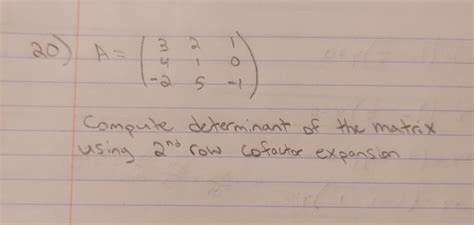 20) A = ( 3 2 1
4 1 0
-2 5 -1 )
Compute determinant of the matrix
using 2nd row cofactor expansion